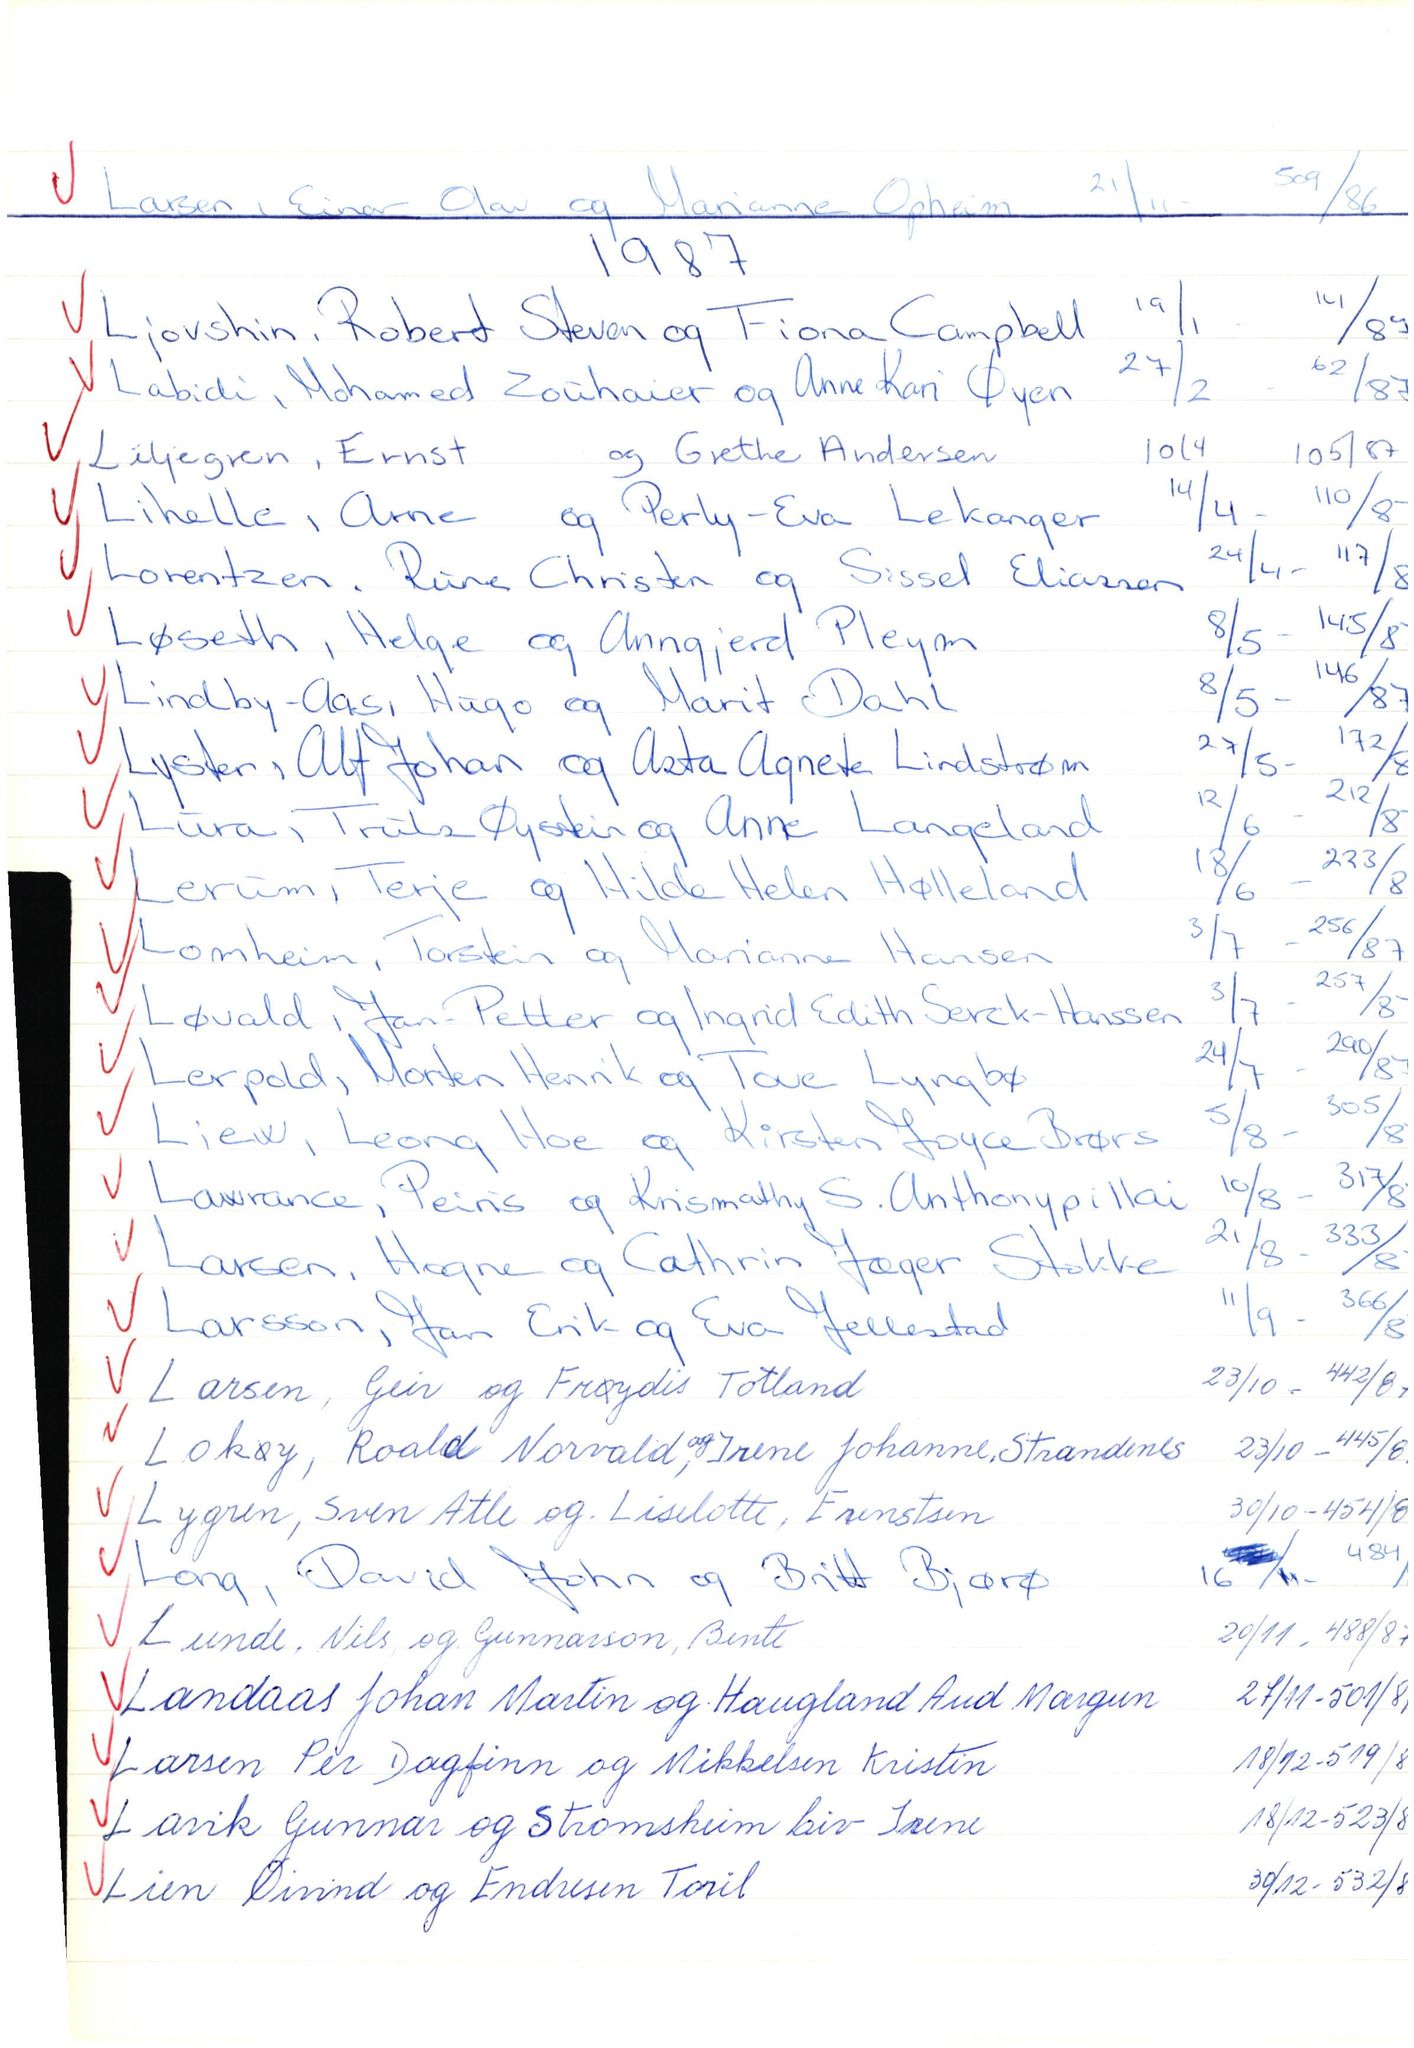 Larsen, Einar Olav og Marianne Opheim 21/11- 509/86
1987
Ljovshin, Robert Steven og Fiona Campbell 19/1 - 14/87
Labidi, Mohamed Zouhaier og Anne Kari Øyen 27/2 - 62/87
Liljegren, Ernst og Grethe Andersen 10/4 105/87
Lihelle, Arne og Perly-Eva Lekanger 14/4 - 110/8
Lorentzen, Rune Christen og Sissel Eliassen 24/4 - 117/8
Løseth, Helge og Anngjerd Pleym 8/5 - 145/8
Lindby-Aas, Hugo og Marit Dahl 8/5 - 146/87
Lyster, Alf Johan og Asta Agnete Lindstrøm 27/5- 172/8
Lura, Truls Øystein og Anne Langeland 12/6 - 212/8
Lerum, Terje og Hilde Helen Hølleland 18/6 - 223/8
Lomheim, Torstein og Marianne Hansen 3/7 - 256/87
Løvald, Jan-Petter og Ingrid Edith Serck-Hanssen 3/7 - 257/8
Lerpold, Morten Henrik og Tove Lyngbø 24/7 - 290/87
Liew, Leong Hoe og Kirsten Joyce Brørs 5/8 - 305/8
Lawrance, Peiris og Krismathy S. Anthonypillai 10/8 - 317/8
Larsen, Hogne og Cathrin Jæger Stokke 21/8 - 333/8
Larsson, Jan Erik og Eva Jellestad 11/9 - 366/8
Larsen, Geir og Frøydis Totland 23/10 - 442/8
Lokøy, Roald Norvald, og Irene Johanne, Strandenes 23/10 - 445/8
Lygren, Sven Atle og. Liselotte, 30/10 - 454/8
Long, David John og Britt Bjørø 16/11- 484/
Lunde, Nils, og Gunnarson, Bente 20/11 - 488/87
Landaas Johan Martin og Haugland Aud Margun 27/11 - 501/8
Larsen Per Dagfinn og Mikkelsen Kristin 18/12 - 519/8
Larvik Gunnar og Strømsheim Liv Irene 18/12 - 523/8
Lien Øivind og Endresen Toril 30/12 - 532/8